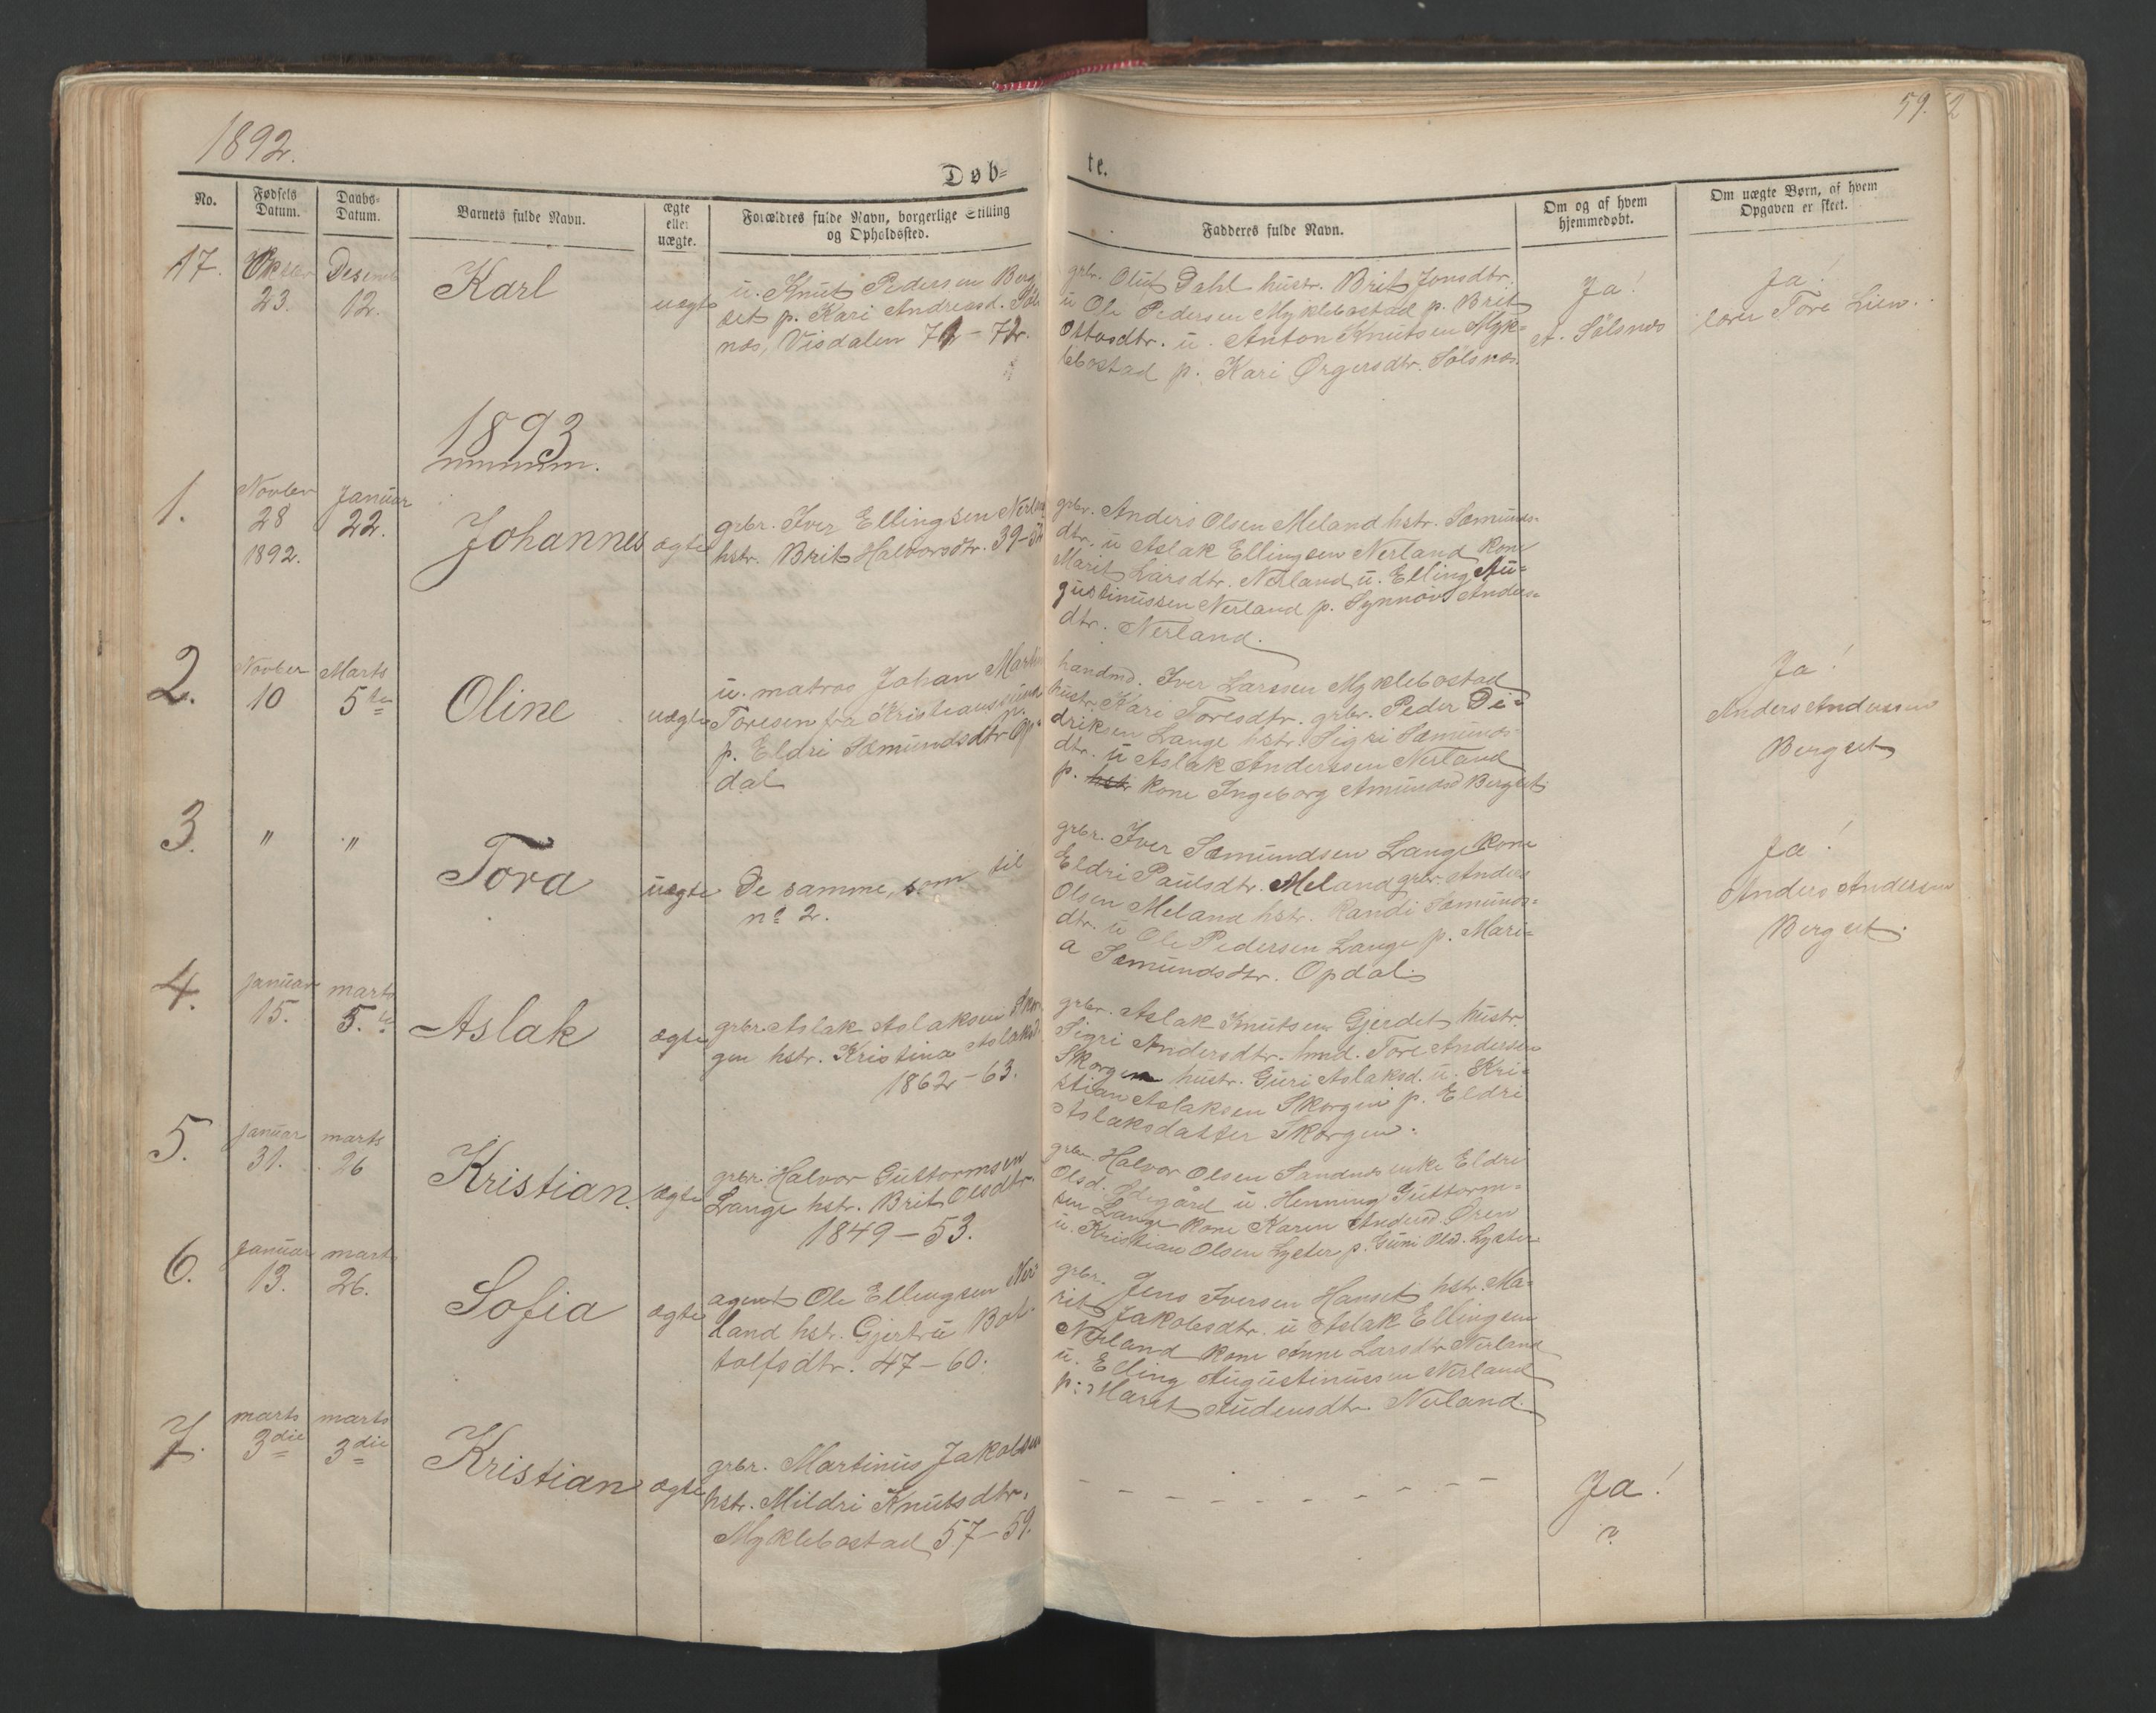 1892.
59.
Døb-
te.
No.
Fødsels
Datum.
Daabs-
Datum.
Barnets fulde Navn.
ægte
eller
uægte.
Forældres fulde Navn, borgerlige Stilling
og Opholdssted.
Fadderes fulde Navn.
Om og af hvem
hjemmedøbt.
Om uægte Børn, af hvem
Opgaven er skeet.
17.
23.
12.
Karl
uægte
u. Knut Pedersen Berg
set p. Kari Andreasd. Søls
nes, Visdalen
grbr. Oluf Dahl hustr. Brit Jonsdtr.
u Ole Pedersen Myklebostad p. Brit
Ottosdtr. u. Anton Knutsen Myk-
lebostad p. Kari Ørgersdtr. Sølsnes.
Ja!
A. Sølsnes
Ja!
lærer Tore Lien.
1893
1.
Novber
28
1892.
Januar
22.
Johannes
ægte
grbr. Iver Ellingsen Nerland
hstr. Brit Halvorsdtr. 39-
grbr. Anders Olsen Meland hstr. Sæmunds-
dtr. u Aslak Ellingsen Nerland kone
Marit Larsdtr. Nerland u. Elling Au-
gustinussen Nerland p. Synnøv Anders-
dtr. Nerland.
2.
Novber
10
Marts
5te
Oline
uægte
u. matros Johan Martin
Toresen fra Kristianssund
p. Eldri Sæmundsdtr Op-
dal
handmd. Iver Larssen Myklebostad
hustr. Kari Toresdtr. grbr. Peder Di-
driksen Lange hstr. Sigri Sæmunds-
dtr. u Aslak Anderssen Nerland
p. hstr kone Ingeborg Amundsd Bergset
Ja!
Anders Andersen
Bergset
3.
"
"
Tora
uægte
De samme, som til
no 2.
grbr. Iver Sæmundsen Lange kone
Eldri Paulsdtr. Meland grbr. Anders
Olsen Meland hstr. Randi Sæmunds-
dtr. u Ole Pedersen Lange p. Mari-
a Sæmundsdtr. Opdal.
Ja!
Anders Andersen
Bergset.
4.
Januar
15.
marts
5.te
Aslak
ægte
grbr. Aslak Aslaksen Skor
gen hstr. Kristina Aslaksd.
1862-63.
grbr. Aslak Knutsen Gjerdet hustr.
Sigri Andersdtr. hmd. Tore Andersen
Skorgen hustr. Guri Aslaksd. u. Kri-
stian Aslaksen Skorgen p. Eldri
Aslaksdatter Skorgen.
5.
Januar
31.
marts
26
Kristian.
ægte
grbr. Halvor Guttormsen
Lange hstr. Brit Olsdtr.
1849-53.
grbr. Halvor Olsen Sandnes enke Eldri
Olsd. Ødegård u. Henning Guttorm-
sen Lange kone Karen Andersd. Øren
u. Kristian Olsen Lyeter p. Guni Olsd. Lyeter
6.
Januar
13.
marts
26.
Sofia
ægte
agent Ole Ellingsen Ner-
land hstr. Gjertru Bot-
tolfsdtr. 47-60.
grbr. Jens Iversen Hanset hstr. Ma-
rit Jakobsdtr. u Aslak Ellingsen
Nerland kone Anne Larsdtr Nerland
u. Elling Augustinussen Nerland
p. Marit Andersdtr. Nerland.
7.
marts
3die
marts
3die
Kristian
ægte
grbr. Martinus Jakobsen
hstr. Mildri Knutsdtr.
Myklebostad 57-59.
- - - - - - - - - -
Ja!
?